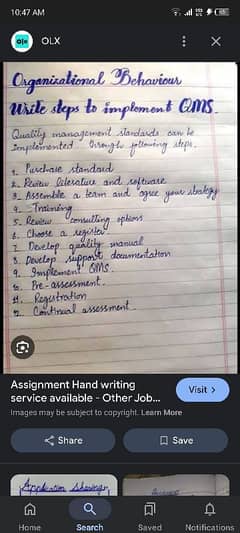 10:47 AM
OLX
Organizational Behaviour
Write steps to implement QMS.
Quality management standards can be
Implemented through following steps.
1. Purchase standard
2. Review literature and software
3. Assemble a team and agree your strategy
4. Training
5. Review consulting options
6. Choose a register
7. Develop quality manual
8. Develop support documentation
9. Implement QMS.
10. Pre-assessment.
11. Registration
12. Continual assessment.
Assignment Hand writing
service available - Other Job...
Visit >
Images may be subject to copyright. Learn More
Share
Save
Application
Home
Search
Saved
Notifications